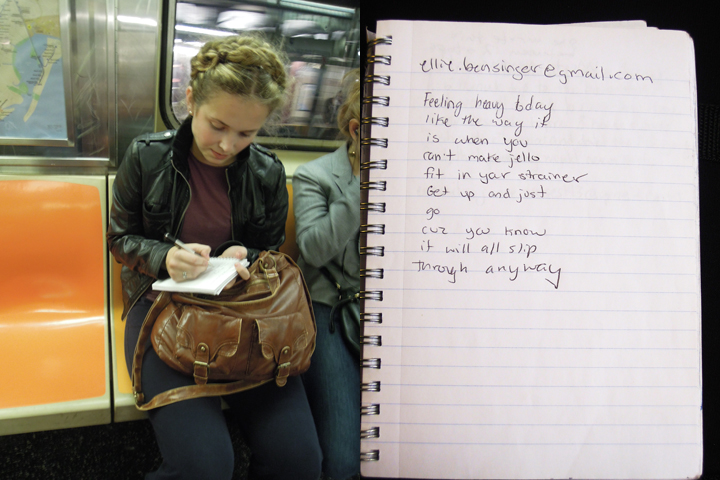 ellie.bensinger@gmail.com
Feeling heavy bday
like the way it
is when you
can't make jello
fit in your strainer
Get up and just
go
cuz you know
it will all slip
through anyway